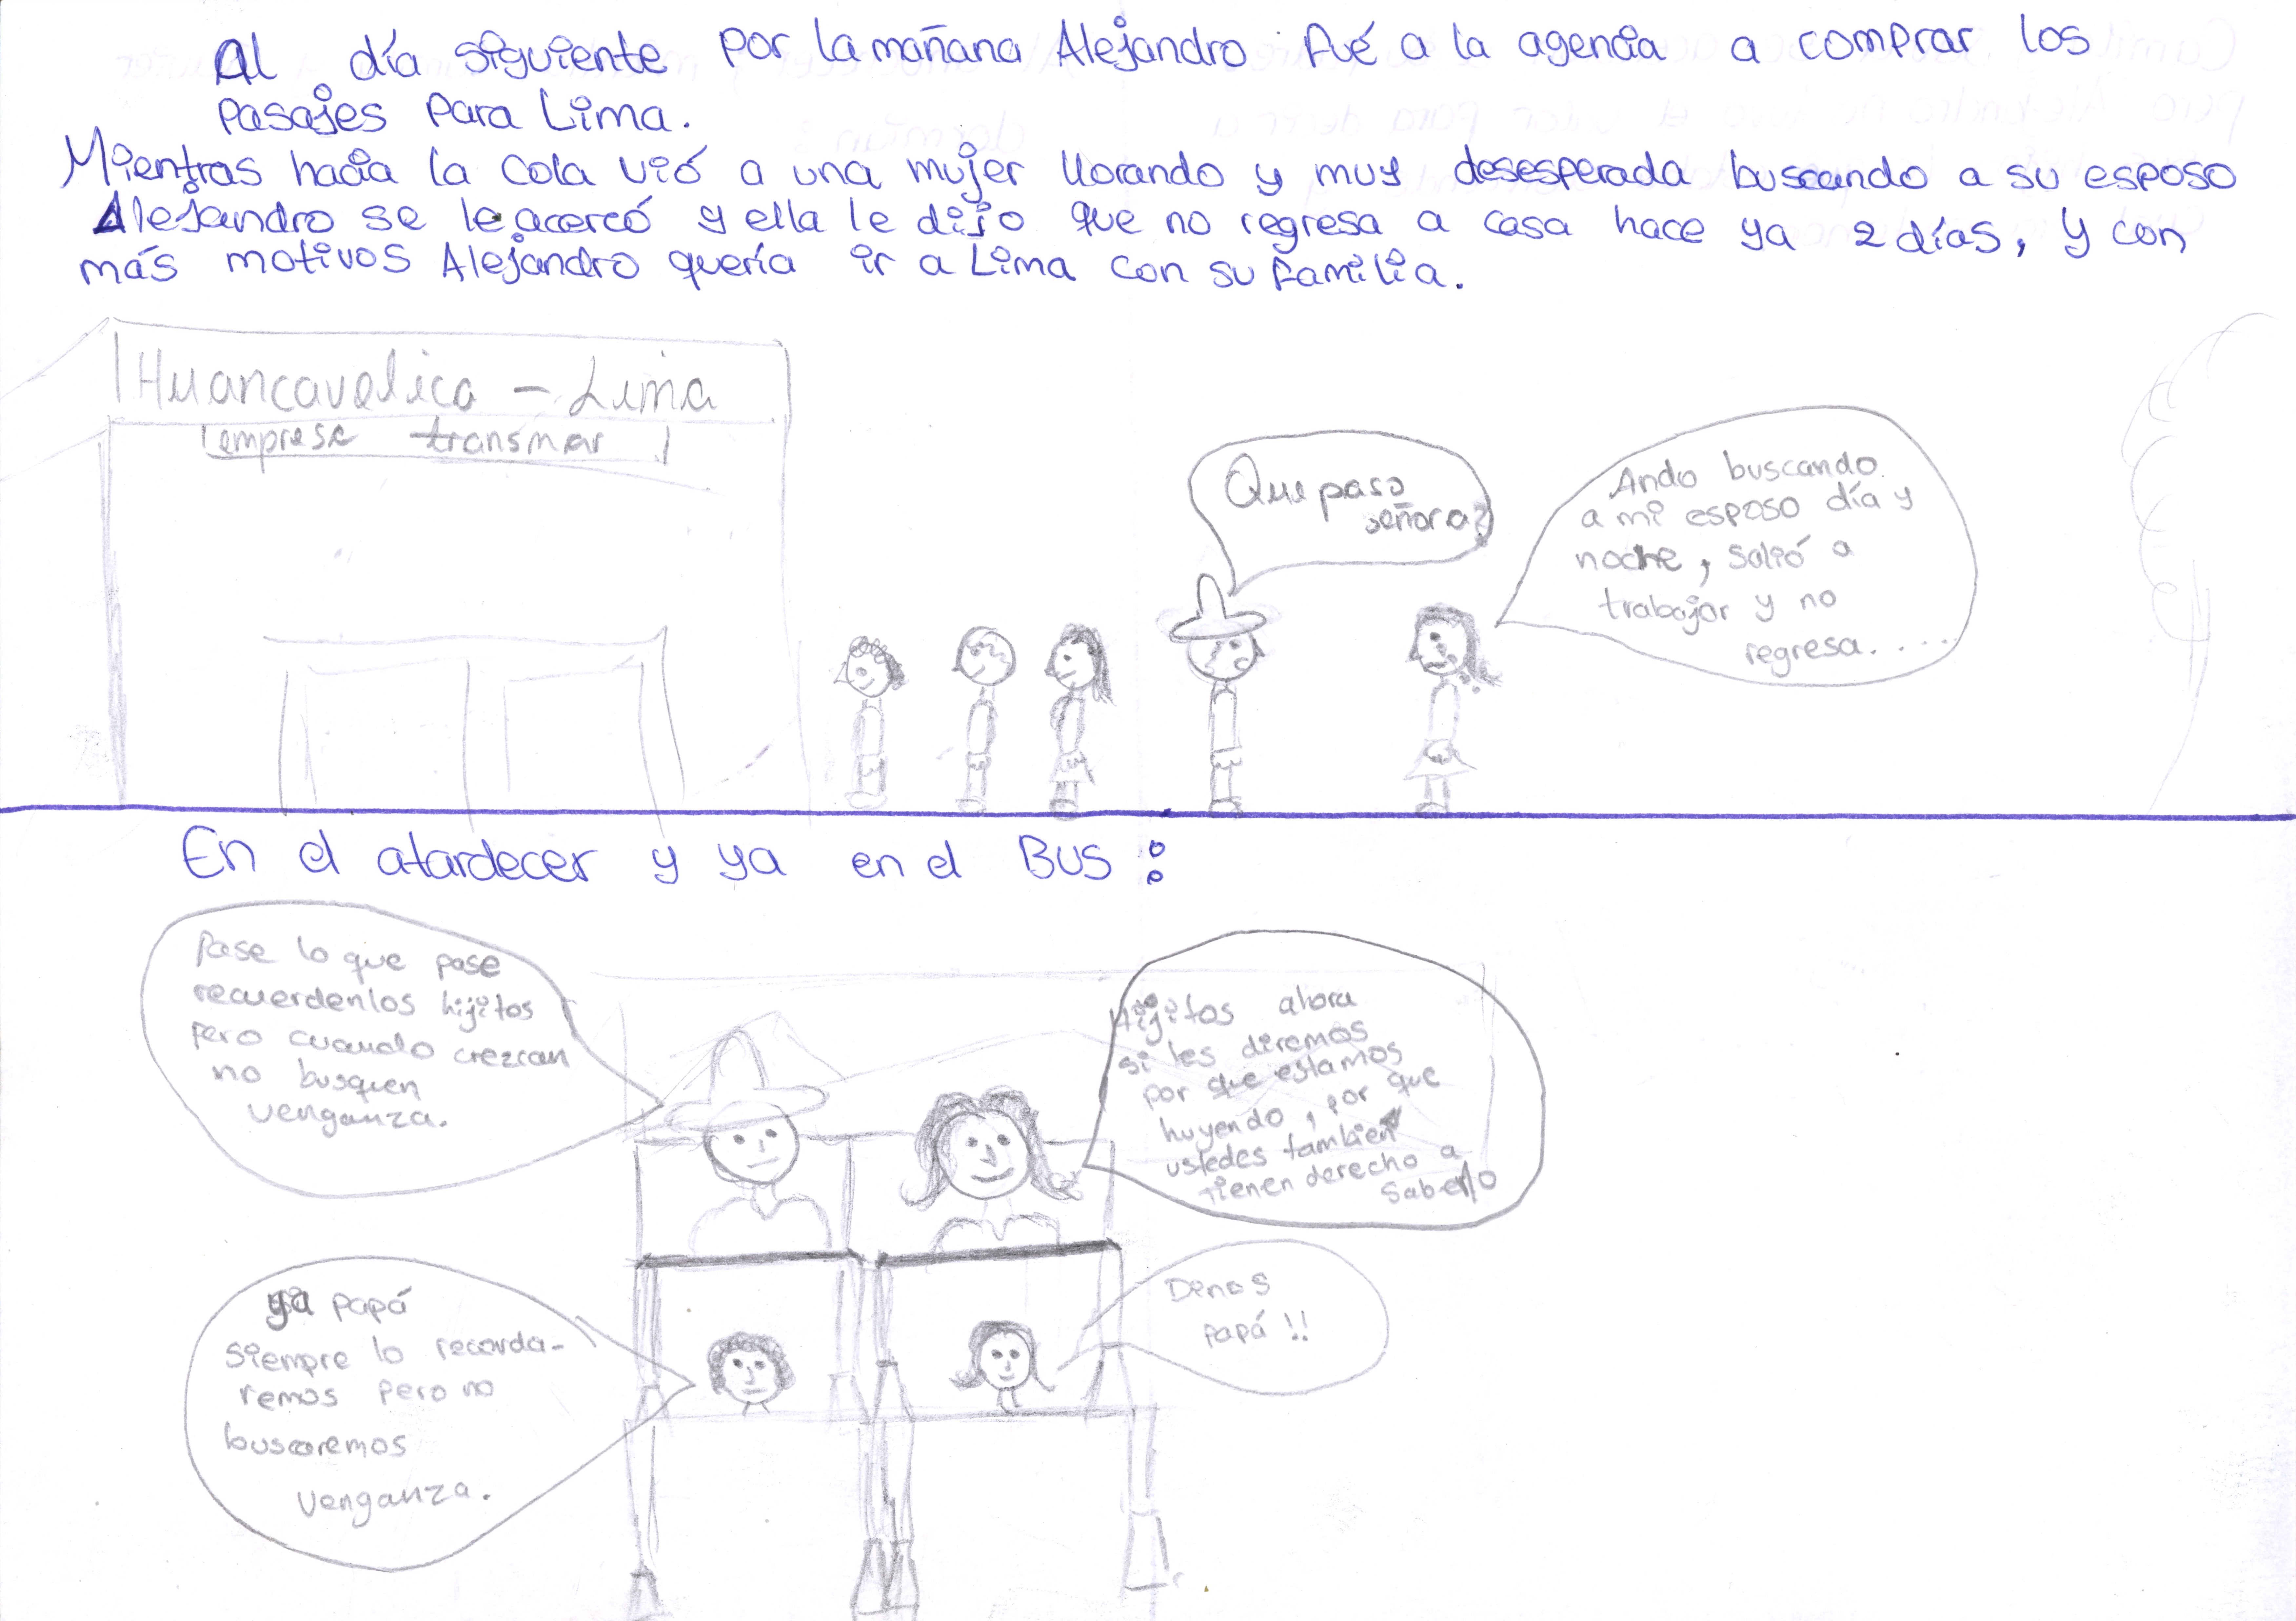 Al día siguiente por la mañana Alejandro fué a la agencia a comprar los
pasajes para Lima.
Mientras hacia la cola vió a una mujer llorando y muy desesperada buscando a su esposo
Alejandro se le acercó y ella le dijo que no regresa a casa hace ya 2 días, y con
más motivos Alejandro quería ir a Lima con su familia.
Huancavelica - Lima
empresa transmar
Que paso
señora?
Ando buscando
a mi esposo día y
noche, salió a
trabajar y no
regresa....
En el atardecer y ya en el Bus:
Pase lo que pase
recuerdenlos hijitos
pero cuando crezcan
no busquen
venganza.
Hijitos ahora
si les diremos
por que estamos
huyendo, por que
ustedes tambien
tienen derecho a
saberlo
ya papá
siempre lo recorda-
remos pero no
buscaremos
venganza.
Dinos
papá!!